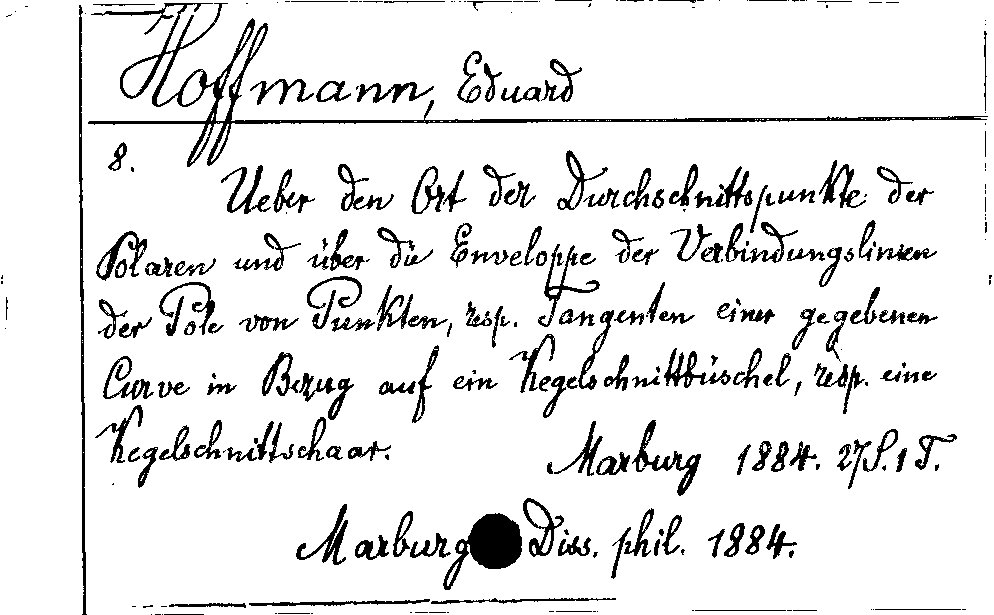 Hoffmann, Eduard
8.
Ueber den Ort der Durchschnittspunkte der
Polaren und über die Enveloppe der Verbindungslinien
der Pole von Punkten, resp. Tangenten einer gegebenen
Curve in Bezug auf ein Kegelschnittbüschel, resp. eine
Kegelschnittschaar.
Marburg 1884. 27 S. 1 T.
Marburg Diss. phil. 1884.